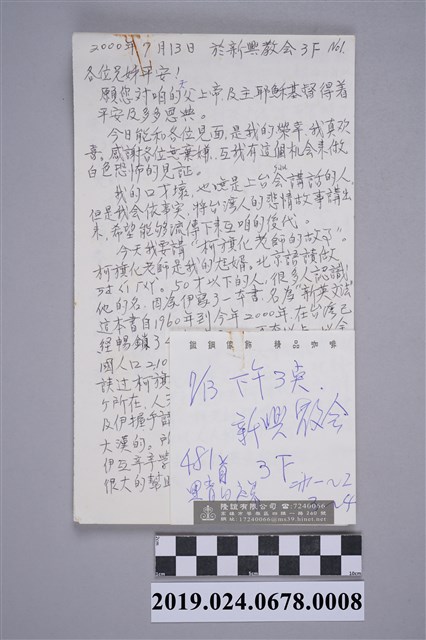 2000年7月13日 於新興教会3F No1.
各位兄姊平安!
願您对咱的父上帝及主耶穌基督得着
平安及多多恩典。
今日能和各位見面,是我的榮幸,我真欢
喜。感謝各位無棄嫌,互我有這個机会来做
白色恐怖的見証。
我的口才壞,也不是上台会講話的人,
但是我会依事实,將台湾人的悲情故事講出
來,希望能够流傳下來互咱的後代。
今天我要講“柯旗化老師的故事”。
柯旗化老師是我的尪婿。北京話讀做
50才以下的人,很多人認識
他的名,因為伊寫了一本書,名為“新英文法”
這本書自1960年到今年2000年,在台湾已
經暢銷
國人口210
談过柯旗
ケ所在,人
及伊握手講
大漢的。
伊互辛手學
很大的幫助
精品咖啡
7/13 下午3点.
新興敎会
481首 3F
隆誼有限公司 當:7240066
高雄市苓雅區四維一路340號
網址:17240066@ms39.hinet.net
2cm
5cm
10cm
2019.024.0678.0008